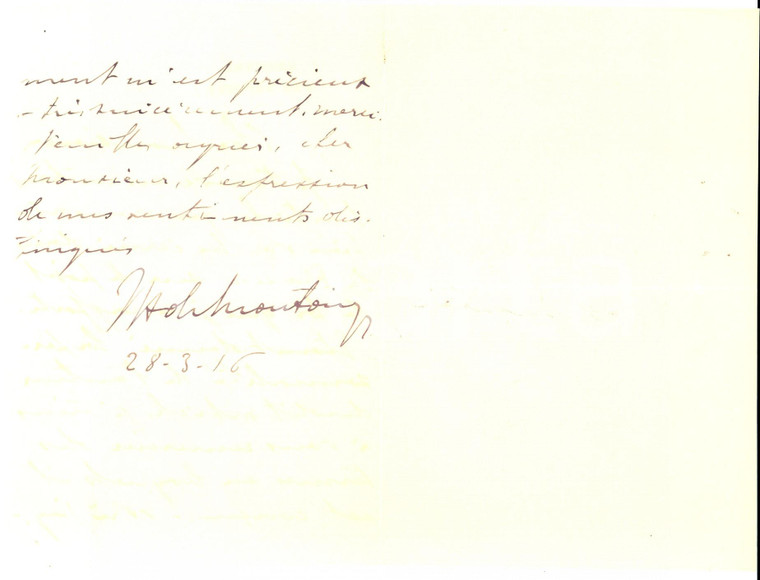 ment m'est précieux
très sincèrement. merci.
agréer, cher
Monsieur, l'expression
de mes sentiments dis-
tingués
28-3-16